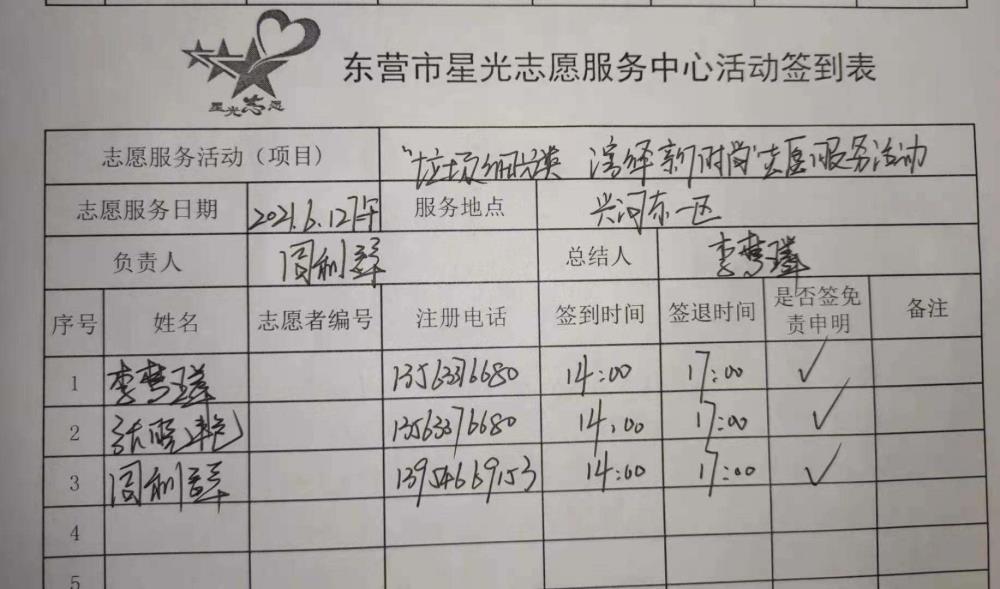 星光志愿
东营市星光志愿服务中心活动签到表
志愿服务活动（项目） "垃圾细分类 演绎新时尚"志愿服务活动
志愿服务日期 2021.6.12下午 服务地点 兴河东一区
负责人 周利 总结人 李梦
序号 姓名 志愿者编号 注册电话 签到时间 签退时间 是否签免责申明 备注
1 李梦 13563376680 14:00 17:00 ✓
2 张晓艳 13563376680 14:00 17:00 ✓
3 周利 13954669153 14:00 17:00 ✓
4
5